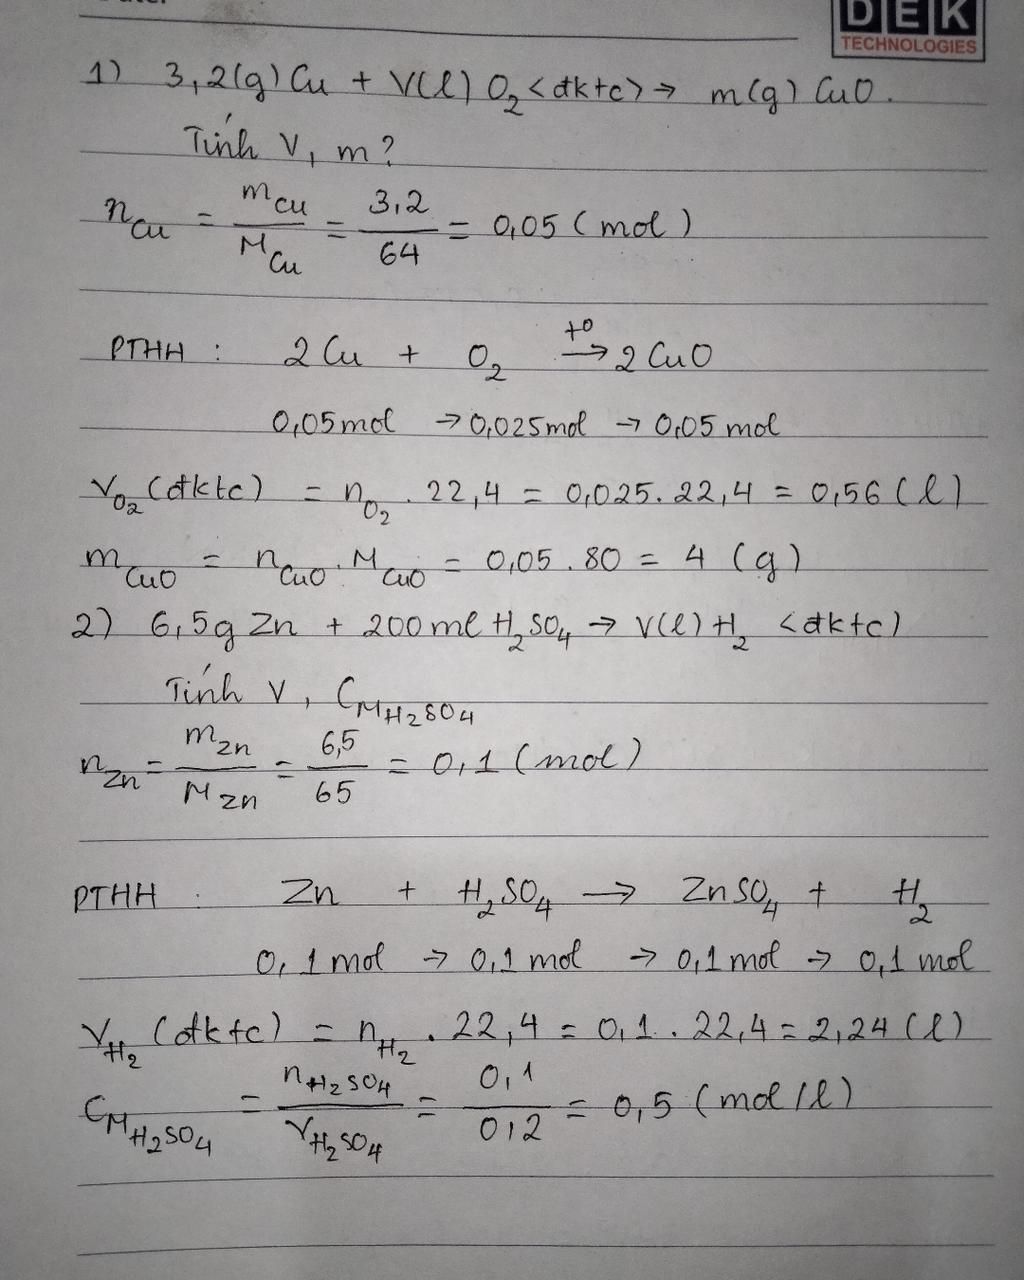 DEK
TECHNOLOGIES
1) 3,2(g) Cu + V(l) O₂ <đktc> → m(g) CuO.
Tính V, m?
n_Cu = m_Cu / M_Cu = 3,2 / 64 = 0,05 (mol)
PTHH : 2Cu + O₂ →(t°) 2CuO
0,05mol → 0,025mol → 0,05 mol
V_O₂ (đktc) = n_O₂ . 22,4 = 0,025. 22,4 = 0,56 (l)
m_CuO = n_CuO . M_CuO = 0,05 . 80 = 4 (g)
2) 6,5g Zn + 200ml H₂SO₄ → V(l) H₂ <đktc)
Tính V, C_M H₂SO₄
n_Zn = m_Zn / M_Zn = 6,5 / 65 = 0,1 (mol)
PTHH : Zn + H₂SO₄ → ZnSO₄ + H₂
0,1mol → 0,1 mol → 0,1 mol → 0,1 mol
V_H₂ (đktc) = n_H₂ . 22,4 = 0,1 . 22,4 = 2,24 (l)
C_M H₂SO₄ = n_H₂SO₄ / V_H₂SO₄ = 0,1 / 0,2 = 0,5 (mol/l)